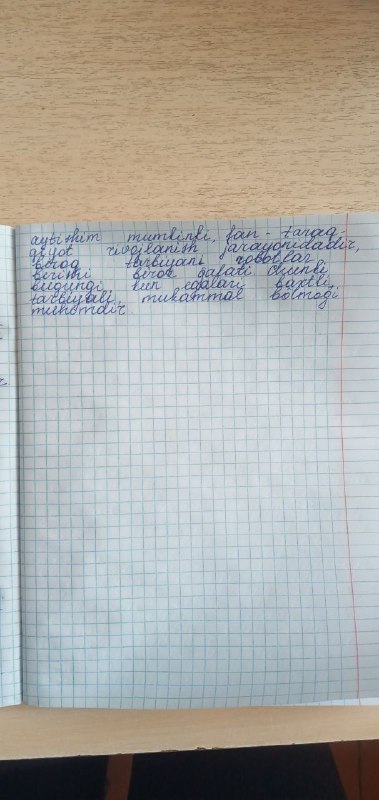 aybishim mumkinki, fan-taraq-
qiyot rivojlanish jarayonidadir,
biroq tarbiyani robotlar
berishi biroz galati chunki
bugungi kun egalari baxtli,
tarbiyali, mukammal bolmogi
muhomdir